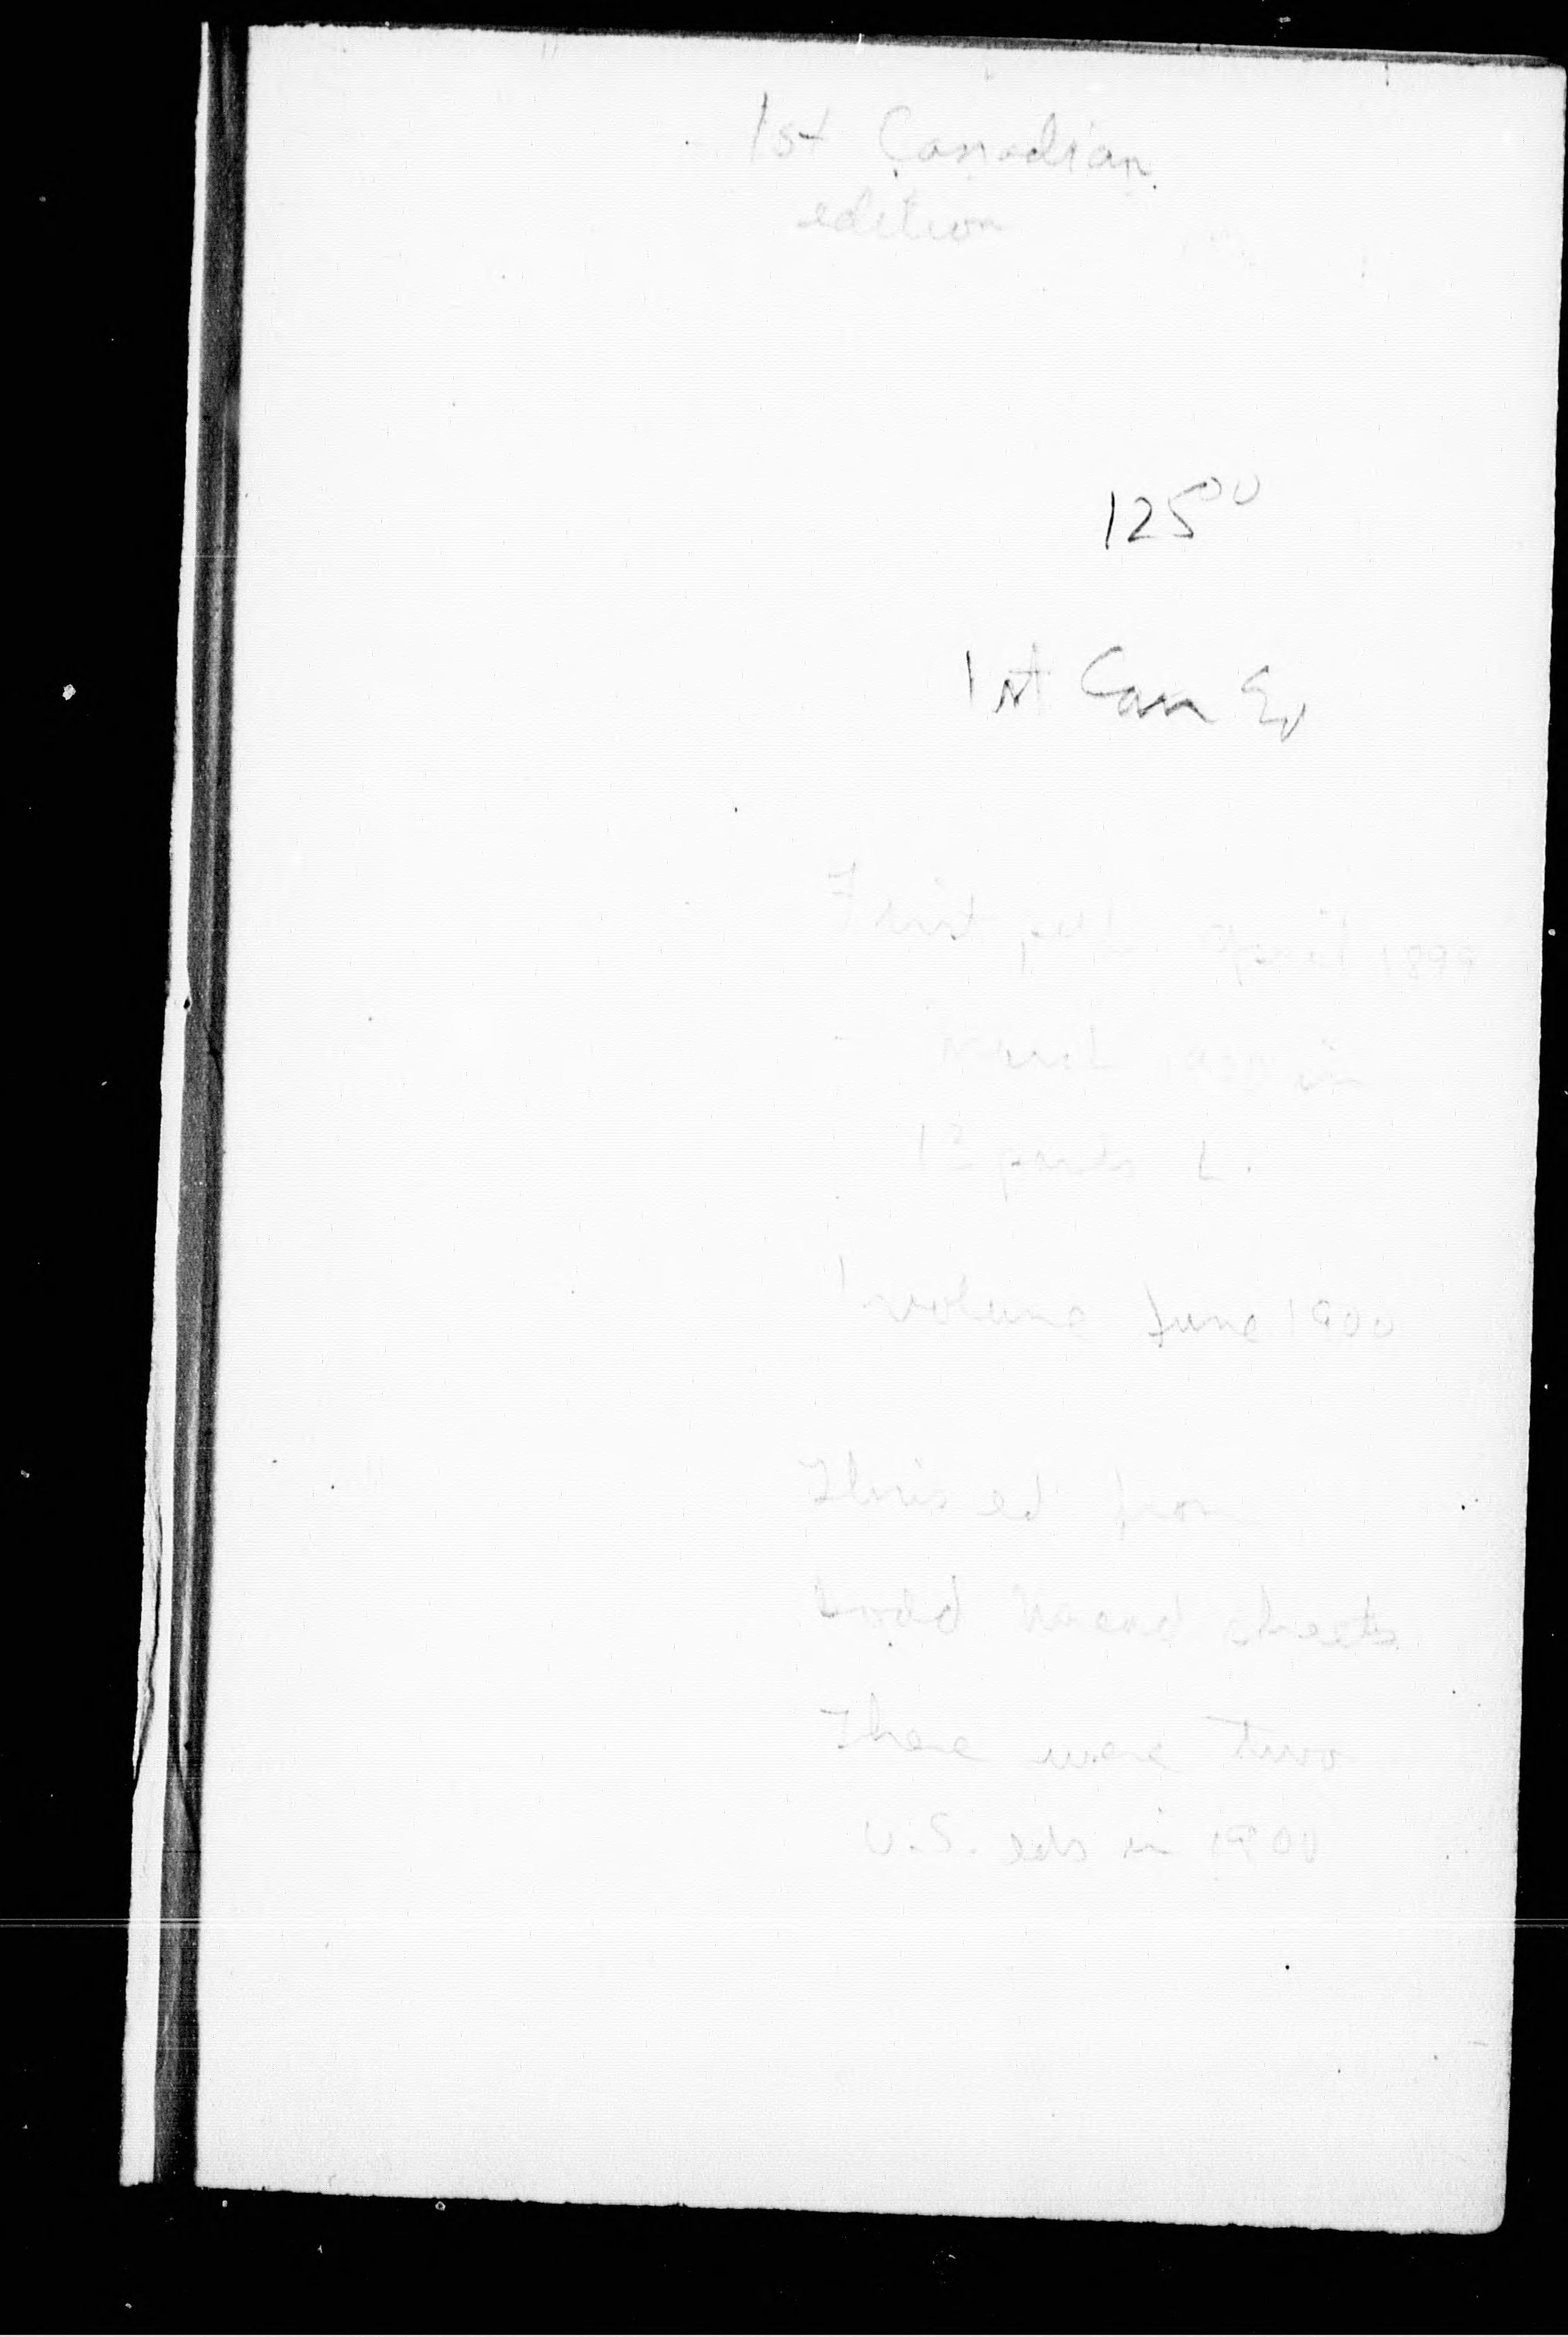 1st Canadian
edition
125⁰⁰
1st Can Ed
First pub April 1899
- March 1900 in
12 parts
1 volume June 1900
This ed from
Dodd Mead sheets
There were two
U.S. eds in 1900